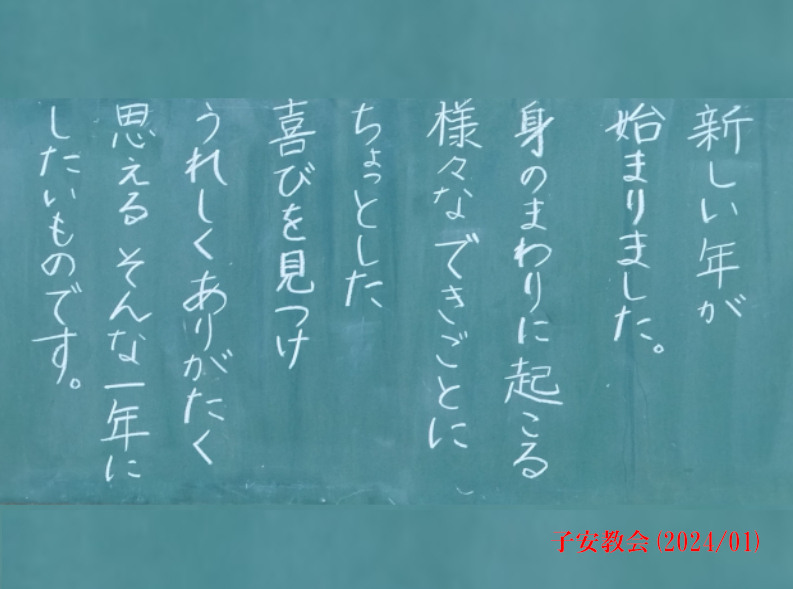 新しい年が
始まりました。
身のまわりに起こる
様々なできごとに
ちょっとした
喜びを見つけ
うれしくありがたく
思える そんな一年に
したいものです。
子安教会 (2024/01)